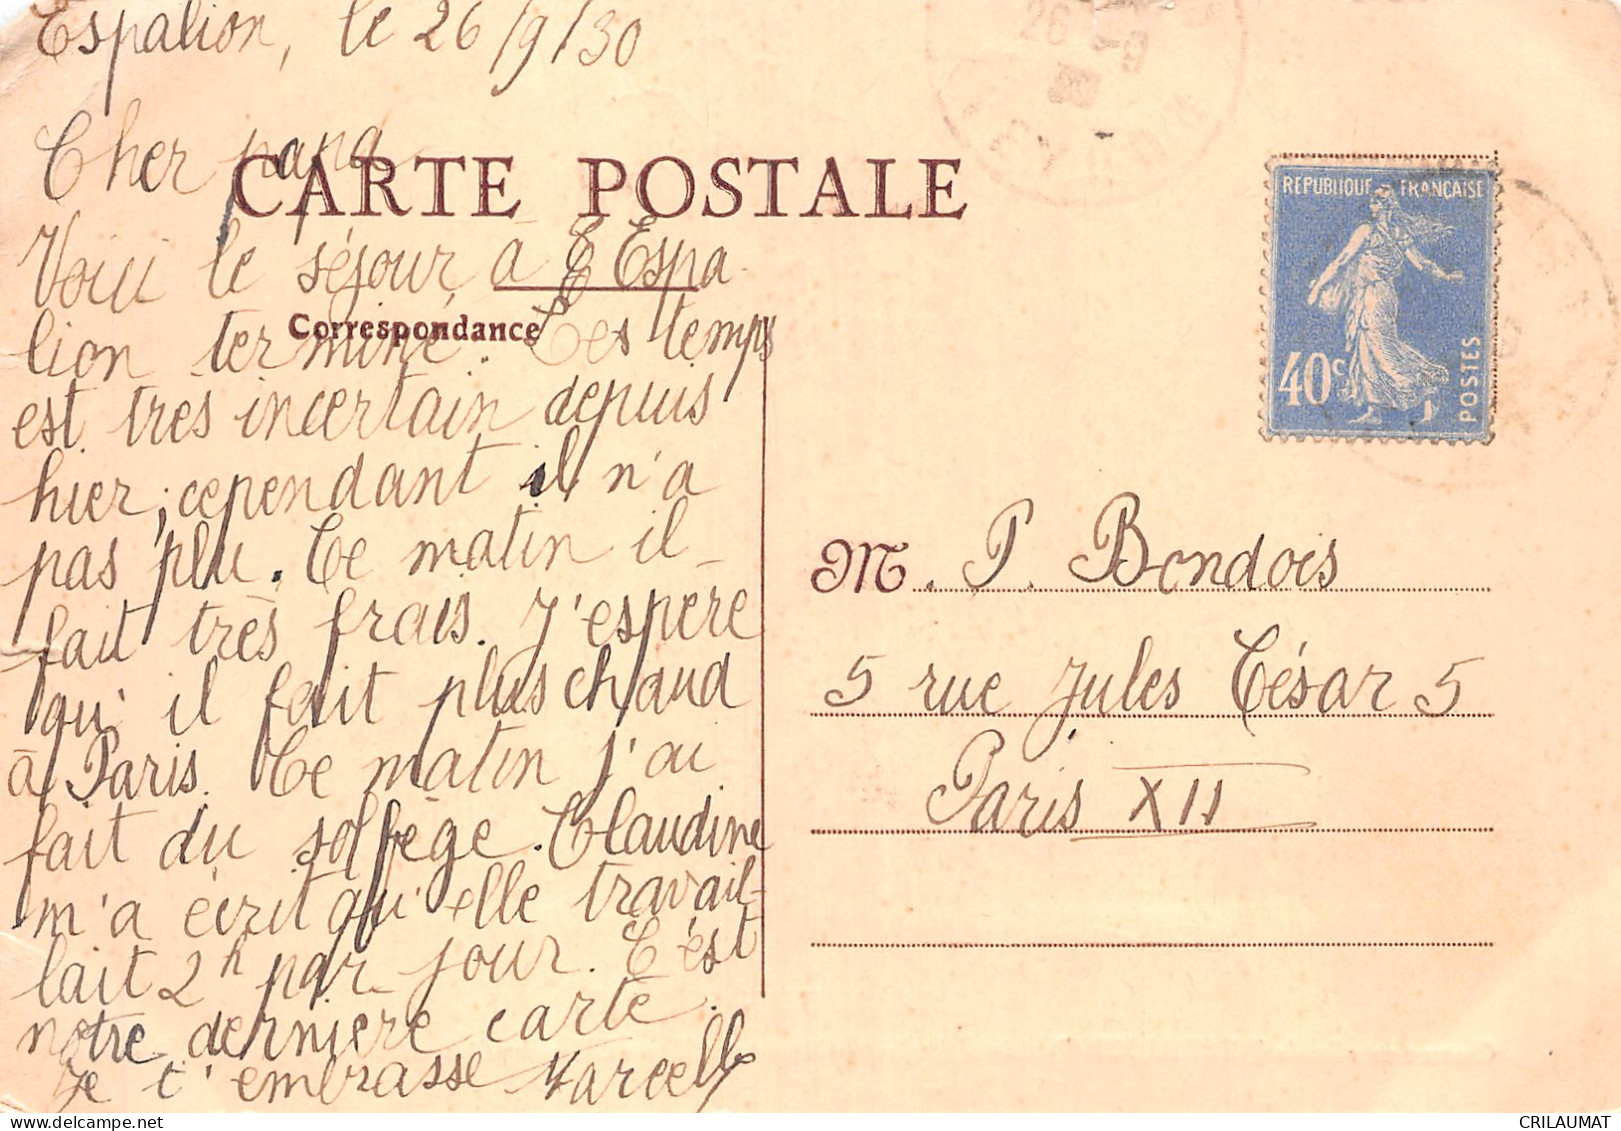 Espalion, le 26/9/30
Cher papa
CARTE POSTALE
Voici le séjour à Espa
lion terminé. Les temps
Correspondance
est très incertain depuis
hier, cependant il n'a
pas plu. Ce matin il
fait très frais. J'espère
qu'il fait plus chaud
à Paris. Ce matin j'ai
fait du solfège. Claudine
m'a écrit qu'elle travail-
lait 2h par jour. C'est
notre dernière carte.
Je t'embrasse Marcelle
RÉPUBLIQUE FRANÇAISE
40c
POSTES
M. P. Bondois
5 rue Jules César 5
Paris XII
26 -9
30
CRILAUMAT